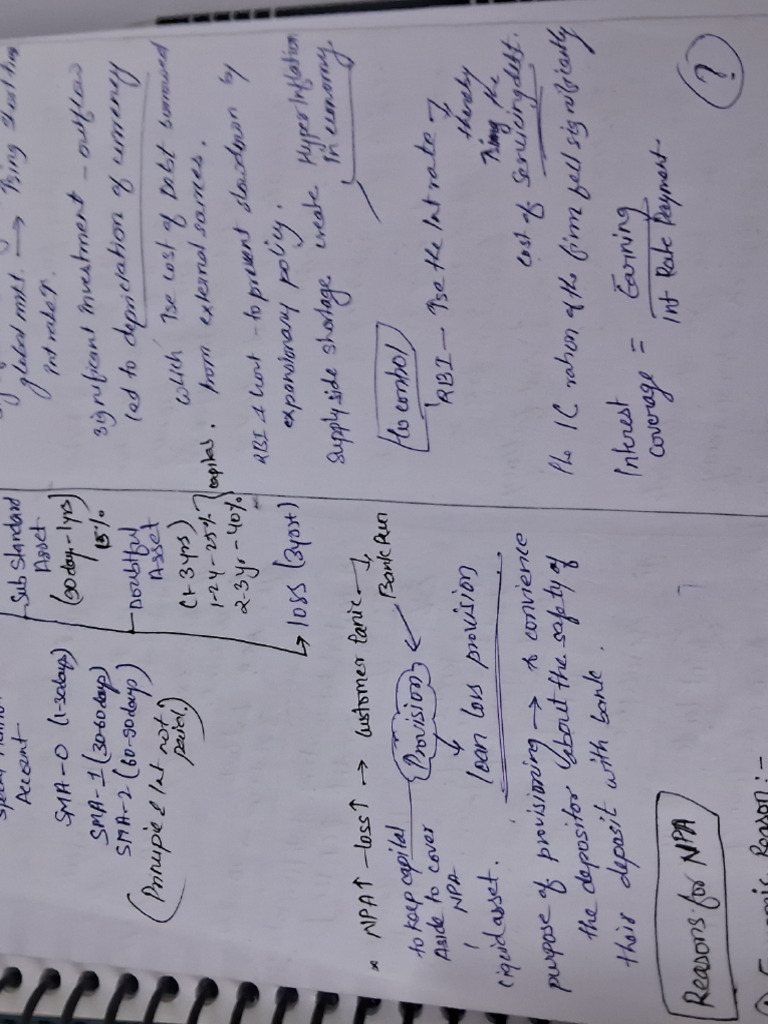 Account
SMA-0 (1-30days)
SMA-1 (30-60days)
SMA-2 (60-90days)
(Principle & Int not
paid.)
Sub Standard
Asset
(90day-1yrs)
15%
Doubtful
Asset
(1-3yrs)
1-2y-25%
2-3yr-40%
capital.
loss (3yrs+)
* NPA↑ -loss↑ → customer panic → Bank Run
to keep capital
Aside to cover
NPA
liquid asset.
Provision
loan loss provision
purpose of provisioning → to convience
the depositor about the safety of
their deposit with bank.
Reasons for NPA
Reason:-
global mkt. →
int rate↑.
significant investment - outflow
led to depriciation of currency
which ↑se cost of Debt borrowed
from external sources.
RBI & Govt - to prevent slowdown by
expansionary policy.
Supply side shortage create Hyperinflation
in economy.
to control
RBI - ↑se the Int rate →
thereby
↑sing the
cost of servicing debt.
the IC ration of the firm fell significantly
Interest
coverage = Earning
Int Rate Payment
?